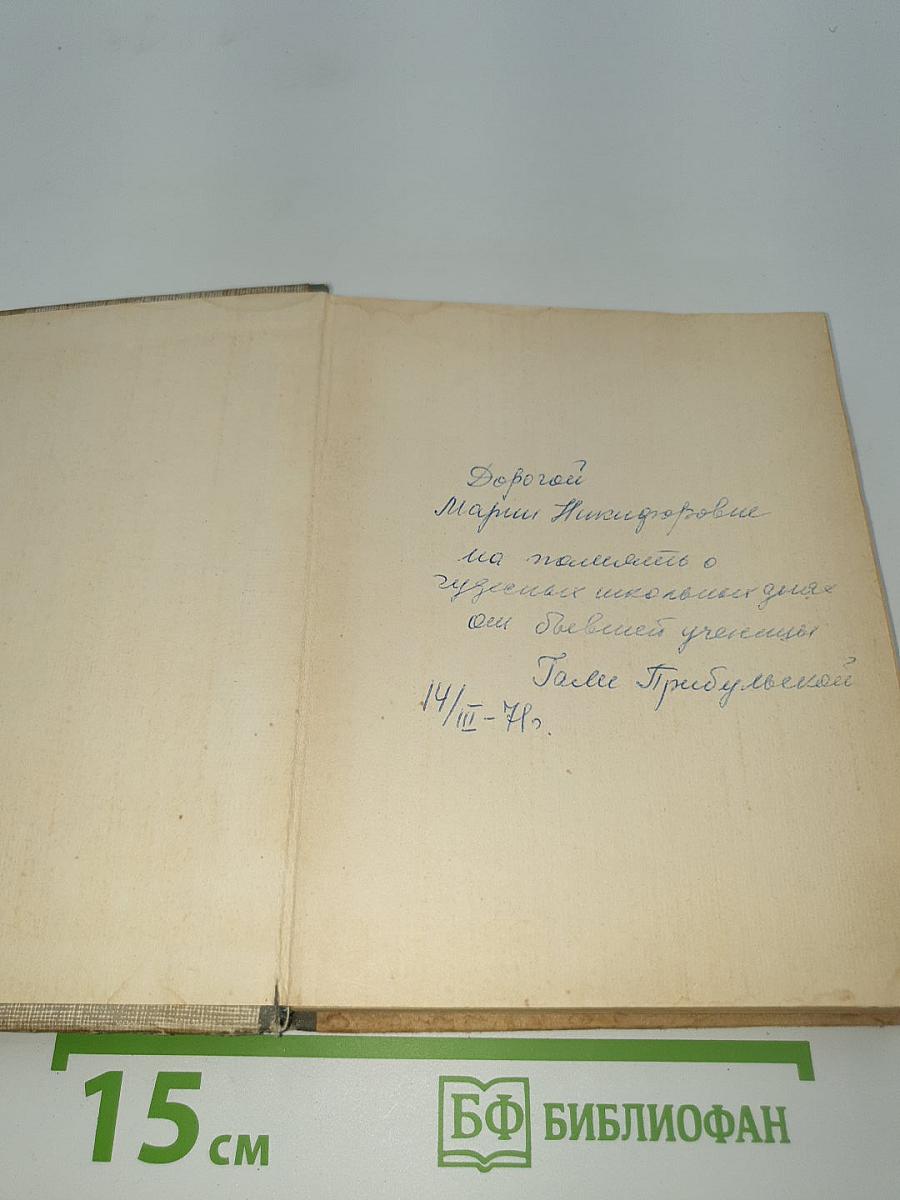 Дорогой
Марии Никифоровне
на память о
чудесных школьных днях
от бывшей ученицы
Гали Прибульской
14/III-71г.
15 см
БФ БИБЛИОФАН